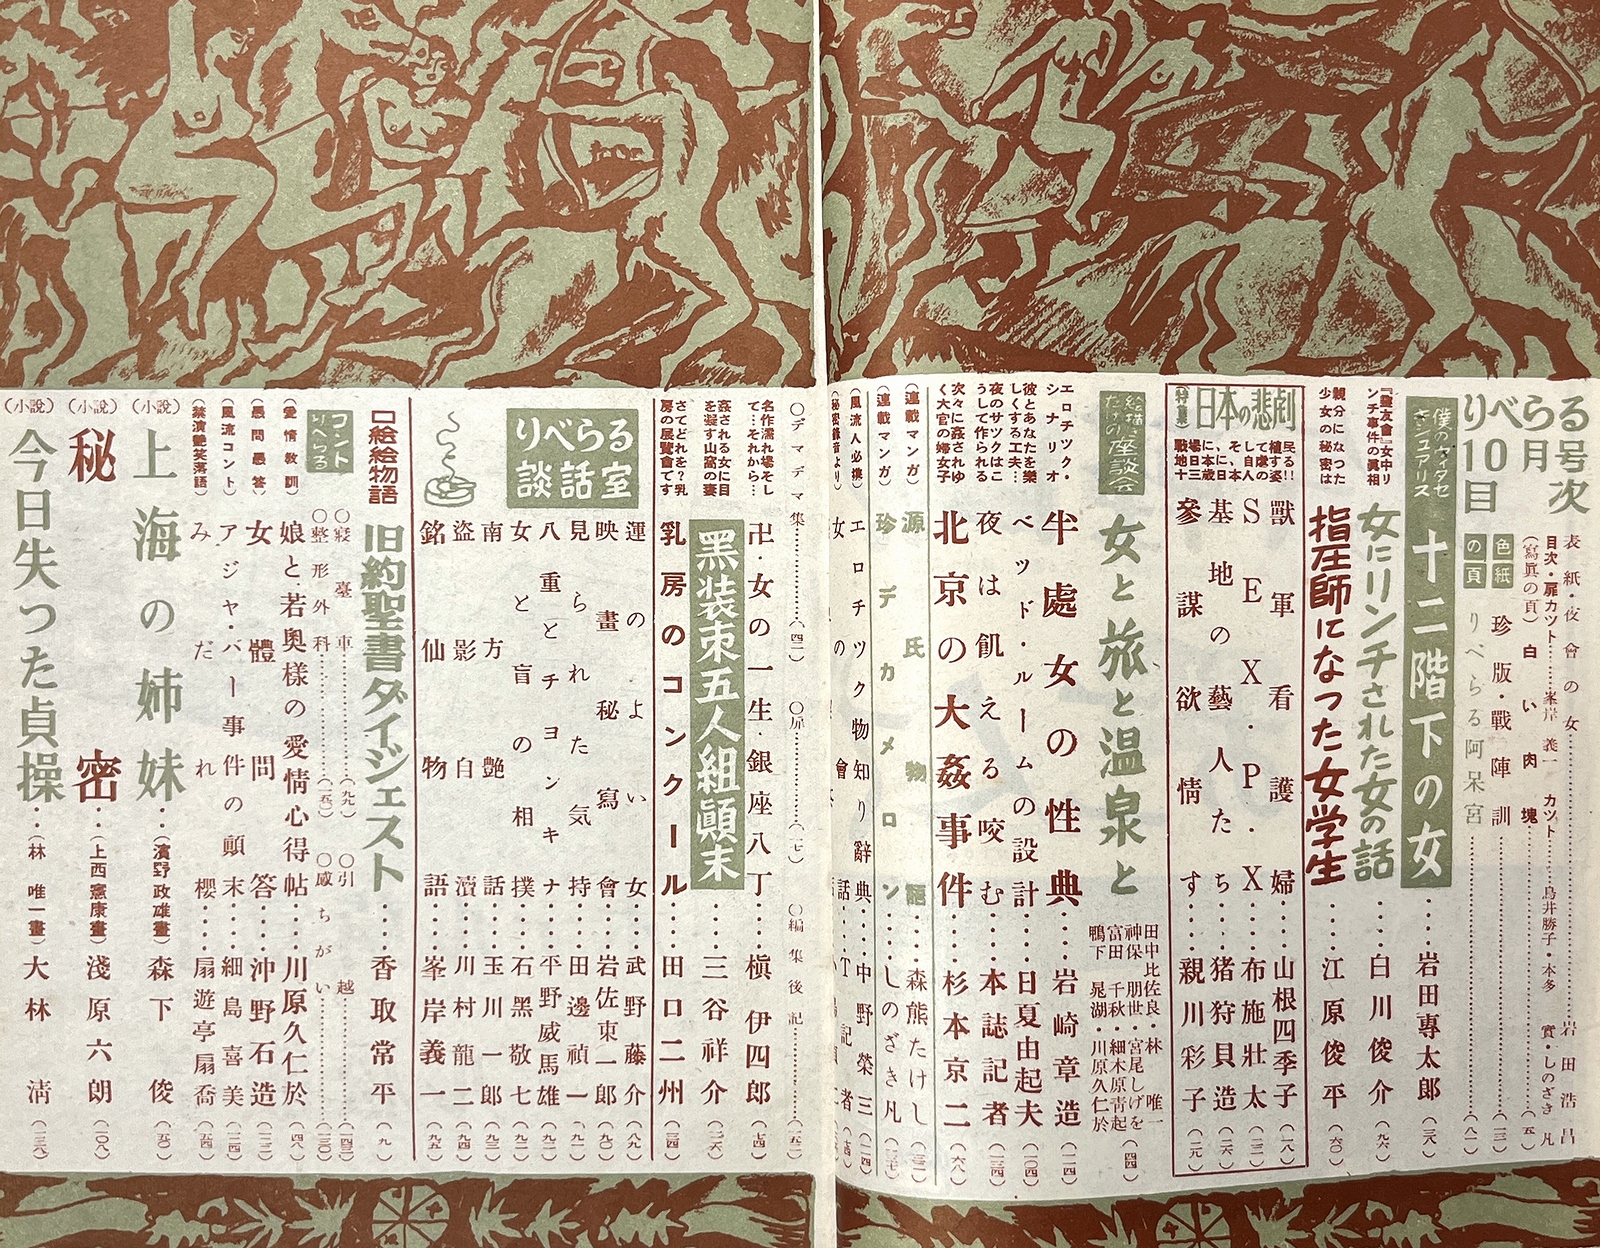 りべらる
10月号
目次
表紙・夜會の女…………岩田浩昌
目次・扉カット……峯岸義一 カット……鳥井勝子・本多 實・しのざき凡
(寫眞の頁) 白い肉塊…………(五)
色紙の頁
珍版・戰陣訓…………(一三)
りべらる阿呆宮…………(八一)
僕のヴィタセクシュアリス
十二階下の女……岩田專太郎(三八)
女にリンチされた女の話……白川俊介(九六)
『龍友會』女中リンチ事件の眞相
親分になつた少女の秘密は
指圧師になつた女学生……江原俊平(六〇)
特集
日本の悲劇
獸軍看護婦……山根四季子(一八)
SEX・P・X……布施壯太(三二)
基地の藝人たち……猪狩貝造(二六)
參謀欲情す……親川彩子(二九)
絵描きだけの座談会
女と旅と温泉と
田中比佐良・林 唯一
神保朋世・宮尾しげを
富田千秋・細木原靑起
鴨下晁湖・川原久仁於
(四四)
エロチック・シナリオ
牛處女の性典……岩崎章造(一一四)
彼とあなたを樂しくする工夫…
ベッド・ルームの設計……日夏由起夫(一〇四)
夜のサックはこうして作られる
夜は飢える咬む……本誌記者(一三四)
次々に姦されゆく大官の婦女子
北京の大姦事件……杉本京二(六八)
(連載マンガ)
源氏物語……森熊たけし
(連載マンガ)
珍デカメロン……しのざき凡
(風流人必携)
エロチック物知り辭典……中野榮三(一一四)
(秘密錄音より)
〇デマデマ集…………(四二) 〇扉…………(一七) 〇編集後記…………(一五二)
名作濡れ場そして…それから…
卍・女の一生・銀座八丁……槇 伊四郎(七四)
姦される女に目を凝す山窩の妻
黑装束五人組顚末……三谷祥介(一二六)
さてどれを?乳房の展覽會です
乳房のコンクール……田口二州(三四)
りべらる談話室
運のよい女……武野藤介(八八)
映畫秘寫會……岩佐東一郎(九〇)
見られた気持……田邊禎一(九一)
八重とチヨンキナ……平野威馬雄(九二)
女と盲の相撲……石黑敬七
南方艶話……玉川一郎(九三)
盜影自瀆……川村龍二(九四)
銘仙物語……峯岸義一(九五)
口絵絵物語
旧約聖書ダイジェスト……香取常平(九)
コントりべらる
〇寢臺車…………(九九) 〇引越…………(一四三)
〇整形外科…………(一一五) 〇感ちがい…………(一三〇)
(愛情敎訓)
娘と若奥樣の愛情心得帖……川原久仁於(四八)
(愚問愚答)
女體問答……沖野石造
(風流コント)
アジャ・バー事件の顚末……細島喜美(一二四)
(禁演艷笑落語)
みだれ櫻……扇遊亭扇喬(五四)
(小說)
上海の姉妹……(濱野政雄畫)森下 俊(五〇)
(小說)
秘密……(上西憲康畫)淺原六朗(一〇八)
(小說)
今日失つた貞操……(林 唯一畫)大林 淸(一三六)